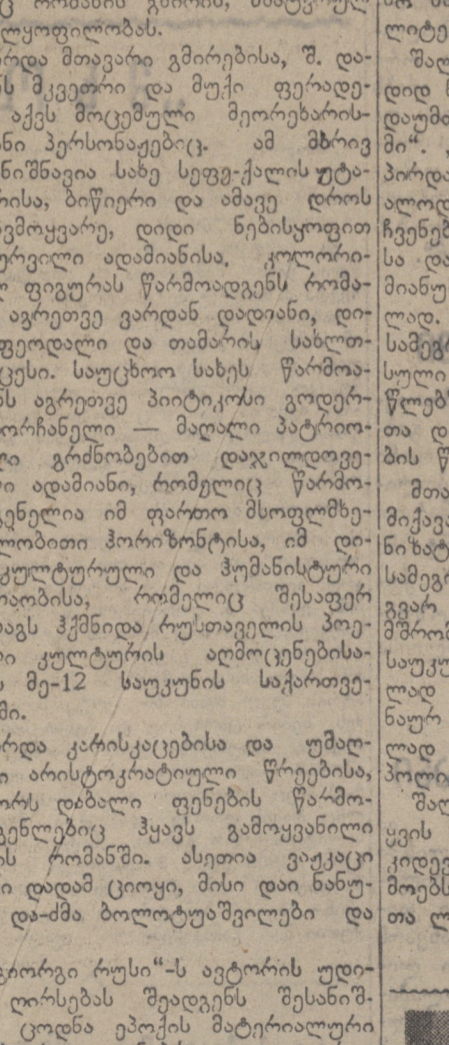 ლყოფილობას.
რდა მთავარი გმირებისა, შ. და-
ს მკვეთრი და მუქი ფერადე-
აქვს მოცემული მეორეხარის-
ნი პერსონაჟებიც. ამ მხრივ
ნიშნავია სახე სეფე-ქალის უტა-
რისა, ბიწიერი და ამავე დროს
ვმოყვარე, დიდი ნებისყოფით
ურვილი ადამიანისა. კოლორი-
ლ ფიგურას წარმოადგენს რომა-
აგრეთვე ვარდან დადიანი, დი-
ფეოდალი და თამარის სახლთ-
ცესი. საუცხოო სახეს წარმოა-
ს აგრეთვე პიიტიკოსი გოდერ-
ორჩანელი — მაღალი პატრიო-
ლი გრძნობებით დაჯილდოვე-
ი ადამიანი, რომელიც წარმო-
გენელია იმ ფართო მსოფლმხე-
ლობითი ჰორიზონტისა, იმ დი-
კულტურული და ჰუმანისტური
რაობისა, რომელიც შესაფერ
აგს ჰქმნიდა რუსთაველის პოე-
ი კულტურის აღმოცენებისა-
ს მე-12 საუკუნის საქართვე-
ში.
რდა კარისკაცებისა და უმაღ-
ი არისტოკრატიული წრეებისა,
ორს დაბალი ფენების წარმო-
გენლებიც ჰყავს გამოყვანილი
ის რომანში. ასეთია ვაჟკაცი
ი დადამ ციოყი, მისი დაი ნანუ-
და-ძმა ბოლოტუაშვილები და
გიორგი რუსი“-ს ავტორის უდი-
ღირსებას შეადგენს შესანიშ-
ცოდნა ეპოქის მატერიალური
ლიტე
შალ
დიდ
დაუმ
მი“.
პირდა
ალოდ
ჩვენებ
სა და
მიანუ
ლად.
სამეგრ
სული
წლებ
თა დ
ბის წ
მთა
მიქავ
ნიზატ
სამეგრ
გვარ
მშრომ
საუკუ
ლად
ნაურ
ლად
პოლი
შალ
ყვის
კიდევ
მოებს
თა ლ